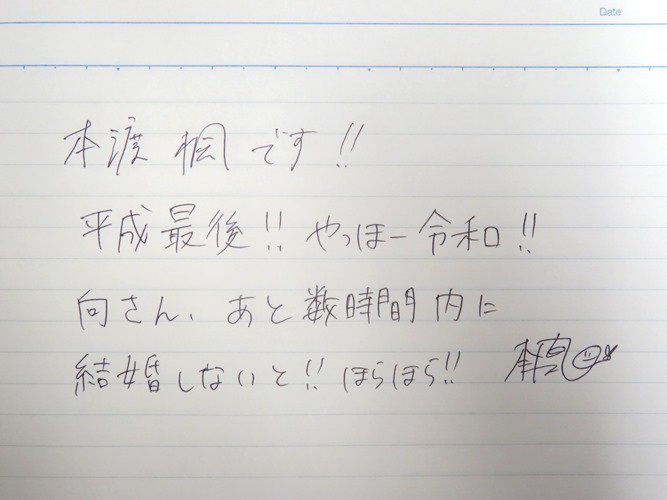 Date
本渡 楓です!!
平成最後!! やっほー令和!!
向さん、あと数時間内に
結婚しないと!! ほらほら!!